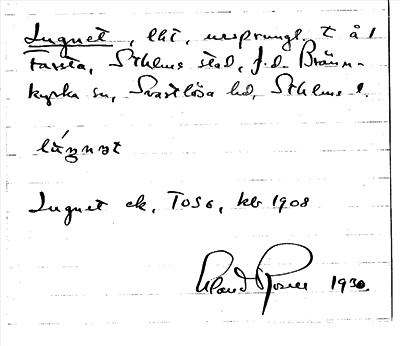 Lugnet, lht, ursprungl. t å 1
Farsta, Sthlms stad, f.d. Bränn-
kyrka sn, Svartlösa hd, Sthlms l.
lúgnet
Lugnet ek, T056, kb 1908
1930